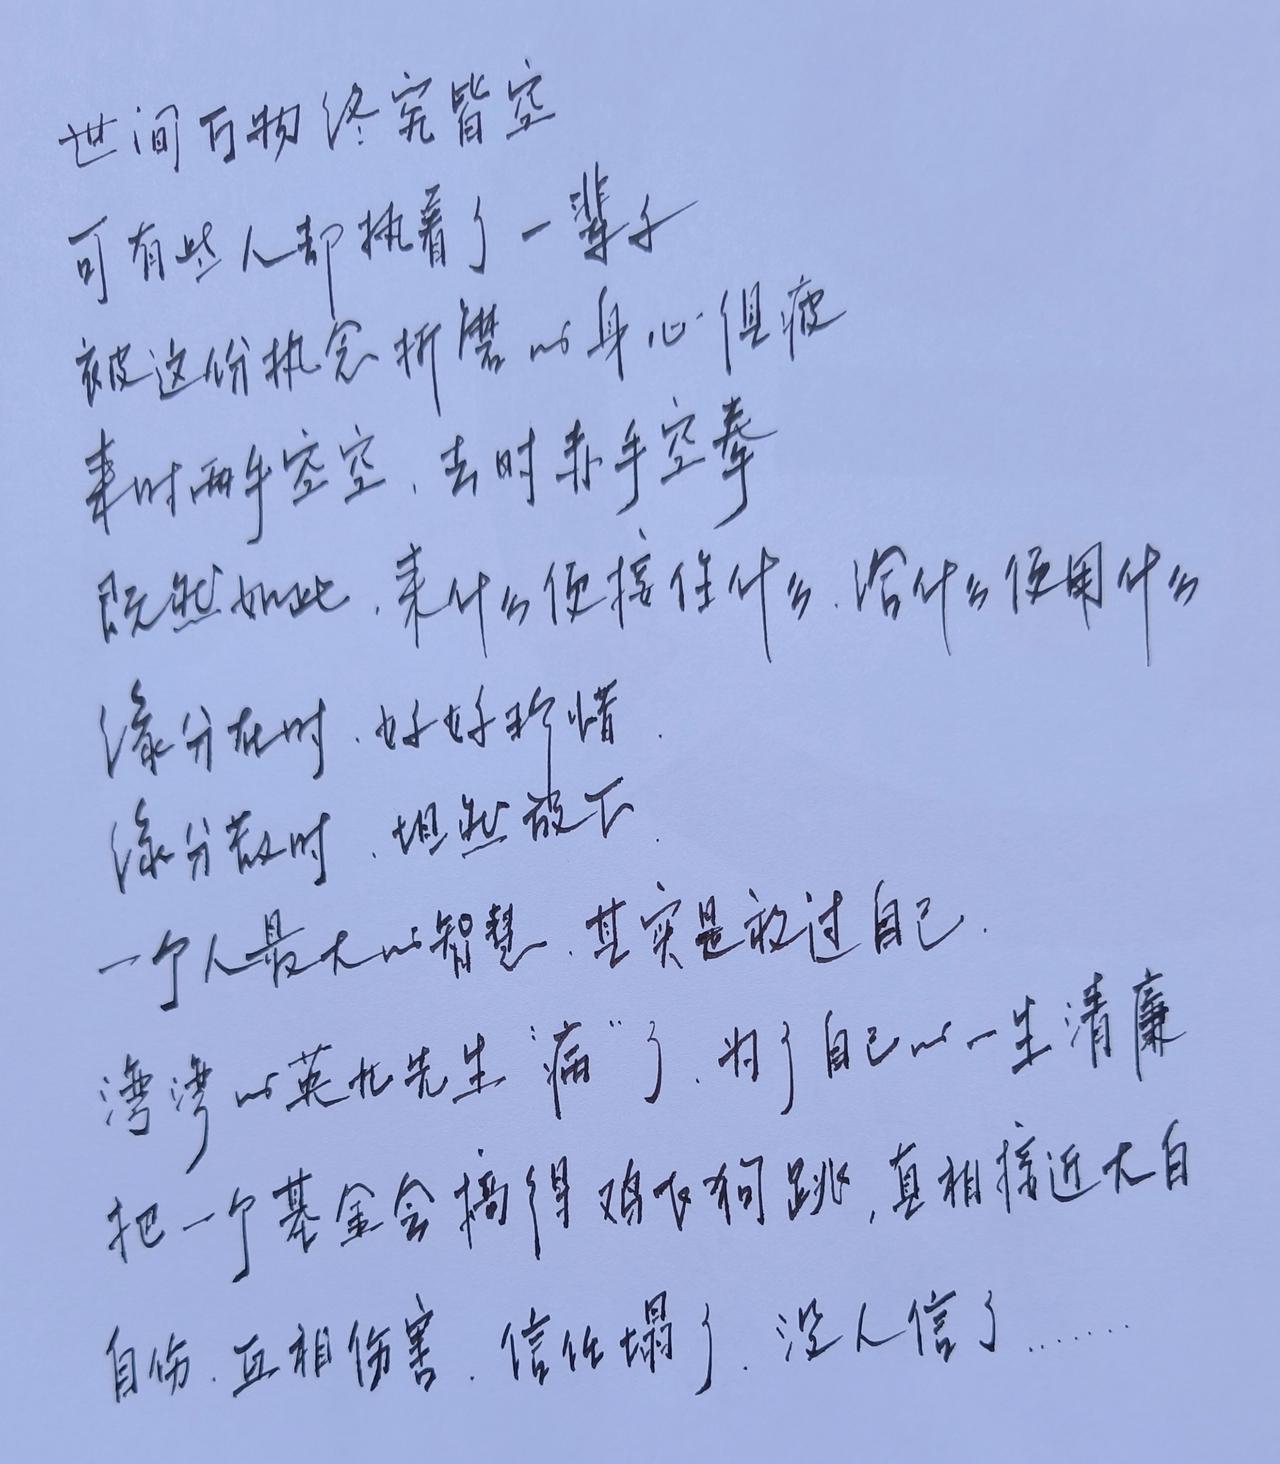 世间万物终究皆空
可有些人却执着了一辈子
被这份执念折磨的身心俱疲
来时两手空空、去时赤手空拳
既然如此、来什么便接住什么、给什么便用什么
缘分在时、好好珍惜.
缘分散时、坦然放下.
一个人最大的智慧、其实是放过自己.
湾湾的英九先生“病”了、为了自己的一生清廉
把一个基金会搞得鸡飞狗跳,真相接近大白
自伤、互相伤害、信任塌了、没人信了......